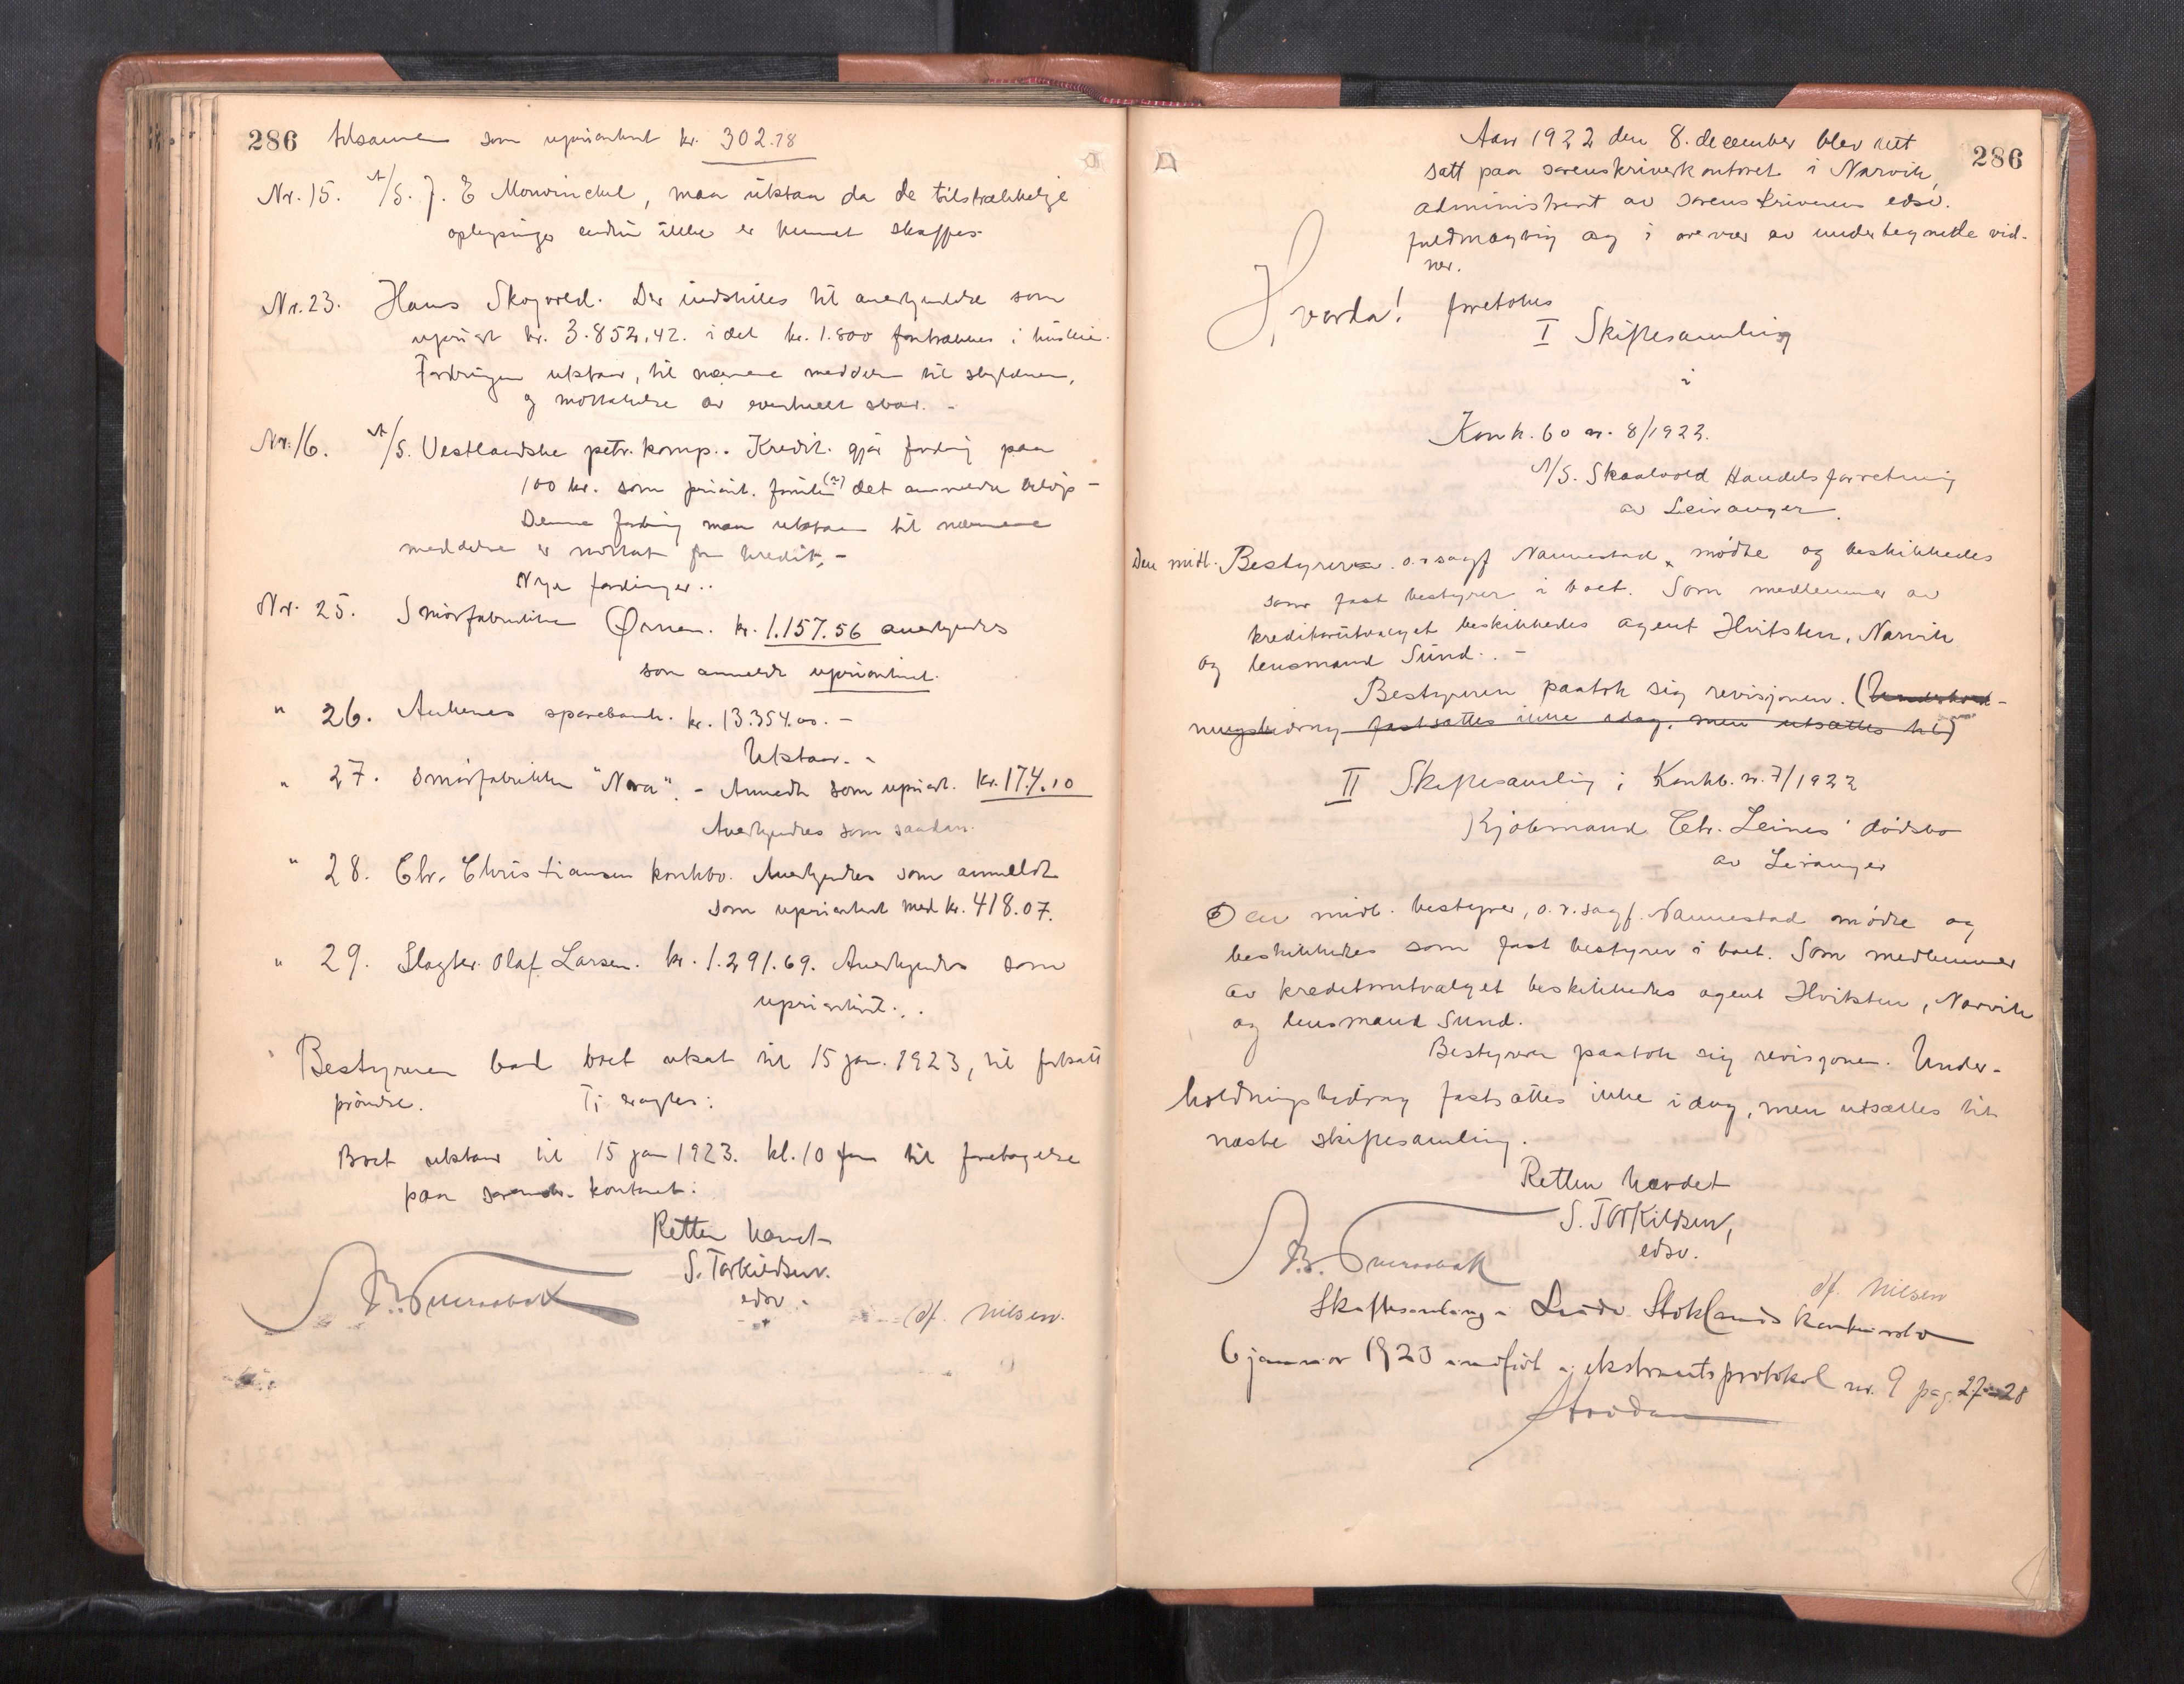 286 tilsammen som uprioritert kr. 302.78
Nr. 15. A/S. J. E Mowinckel, maa utstaa da de tilstrækkelige
oplysninger endnu ikke er kunnet skaffes.
Nr. 23. Hans Skogvold. Der indstilles til anerkjendelse som
upriort kr. 3.852,42. idet kr. 1.800 fratrækkes i husleie.
Fordringen utstaar, til nærmere meddelelse til skyldneren,
og mottakelse av eventuelt svar. -
Nr. 16. A/S. Vestlandske petr. komp.. Kredit. gjør fordring paa
100 kr. som priorit. foruten det anmeldte beløp -
Denne fordring maa utstaa til nærmere
meddelelse er mottat fra kredit. -
Nye fordringer..
Nr. 25. Smørfabrikken Ørnen. kr. 1.157.56 anerkjendes
som anmeldt uprioritert.
" 26. Ankenes sparebank. kr. 13.354.00. -
Utstaar. -
" 27. Smørfabrikken "Nora". - Anmeldt som upriort. kr. 174.10
Anerkjendes som saadan.
" 28. Chr. Christiansen konkbo. Anerkjendes som anmeldt
som uprioritert med kr. 418.07.
" 29. Slagter Olaf Larsen. kr. 1.291.69. Anerkjendes som
uprioritert..
Bestyreren bad boet utsat til 15 jan. 1923, til fortsatt
prøvelse. Ti eragtes:
Boet utstaar til 15 jan 1923. kl. 10 fm til foretagelse
paa sorenskr. kontoret.
Retten hævet
S. Torkildsen.
edsv.
Of. Nilsen.
286
Aar 1922 den 8. december blev ret
satt paa sorenskriverkontoret i Narvik,
administrert av sorenskriverens edsv.
fuldmægtig og i overvær av undertegnede vid-
ner.
Hvorda! foretokes
I Skiftesamling
i
Konk. bo nr. 8/1922.
A/S. Skaalvold Handelsforretning
av Leiranger.
Den midl. Bestyrer o.r sagf Nannestad mødte og beskikkedes
som fast bestyrer i boet. Som medlemmer av
kreditorutvalget beskikkedes agent Hvitsten, Narvik
og lensmand Sund.. -
Bestyreren paatok sig revisjonen. (Underhold-
ningsbidrag fastsattes ikke idag, men utsættes til)
II Skiftesamling i Konkb. nr. 7/1922
Kjøbmand Chr. Leines' dødsbo
av Leiranger
Den midl. bestyrer, o.r.sagf. Nannestad mødte og
beskikkedes som fast bestyrer i boet. Som medlemmer
av kreditorutvalget beskikkedes agent Hvitsten, Narvik
og lensmand Sund.
Bestyreren paatok sig revisjonen. Under-
holdningsbidrag fastsattes ikke idag, men utsættes til
næste skiftesamling.
Retten hævdet
S. Torkildsen,
edsv.
Of. Nilsen
Skiftesamling i Stoklands konkursbo
6 januar 1923 indført i ekstraretsprotokol nr. 9 pag. 27-28